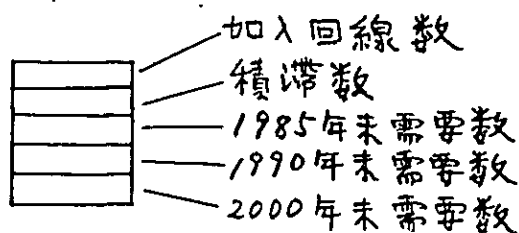 加入回線数
積滞数
1985年末需要数
1990年末需要数
2000年末需要数